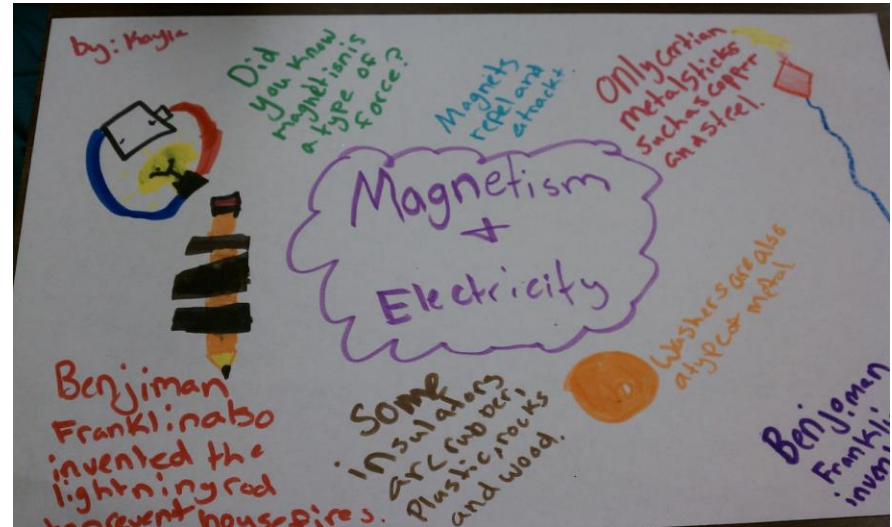 by: Kayla
Did
you know
magnetism is
a type of
force?
Magnets
repel and
atrackt.
Only certian
metal sticks
such as copprr
and steel.
Magnetism
+
Electricity
Washers are also
a type of metal
Benjiman
Franklin also
invented the
lightning rod
to prevent housefires.
Some
insulators
are rubber,
Plastic, rocks
and wood.
Benjoman